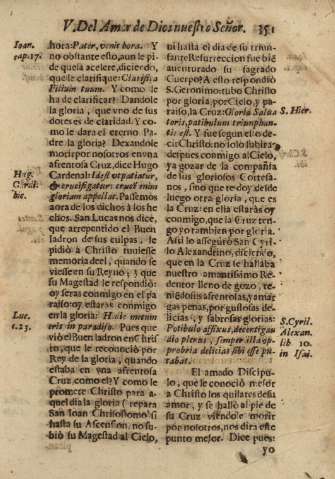 V. Del Amor de Dios nuestro Señor. 351
Ioan.
cap. 17.
hora: Pater, venit hora. Y
no obstante esto, aun le pi-
de que la acelere, diciendo,
que le clarifique: Clarifica
Filium tuum. Y como le
ha de clarificar? Dandole
la gloria, que vno de sus
dotes es de claridad. Y co-
mo le dara el eterno Pa-
dre la gloria? Dexandole
morir por nosotros en vna
afrentosa Cruz, dice Hugo
Hug.
Cardinal: Idest vt patiatur,
& crucifigatur: crucē enim
hic.
gloriam appellat. Passemos
aora de los dichos à los he-
chos. San Lucas nos dice,
que arrepentido el Buen
ladron de sus culpas, le
pidiò à Christo tuuiesse
memoria deel, quando se
viesse en su Reyno; y que
su Magestad le respondiò:
oy seras conmigo en el pa-
raiso: oy estaràs conmigo
Luc.
c. 23.
en la gloria: Hodie mecum
eris in paradiso. Pues que
viò el Buen ladron en Chris-
to, que le reconociò por
Rey de la gloria, quando
estaba en vna afrentosa
Cruz como el? Y como le
promete Christo para a-
quel dia la gloria (repara
San Ioan Chrisostomo) si
hasta su Ascension no su-
biò su Magestad al Cielo,
ni hasta el dia de su triun-
fante Resurreccion fue bie
auenturado su sagrado
Cuerpo? A esto respondiò
S. Geronimo: tubo Christo
por gloria, por Cielo, y pa-
S. Hier.
raiso, la Cruz: Gloria Salua
toris, patibulum triumphan-
tis est. Y fue segun el o de-
cir Christo: no solo subiràs
despues conmigo al Cielo,
ya gozar de la compañia
de los gloriosos Cortesa-
nos, sino que te doy desde
luego otra gloria, que es
la Cruz: en ella estaràs oy
conmigo, que la Cruz ten-
go yo tambien por gloria.
Assi lo asseguró San Cyri-
lo Alexandrino, discurrio,
que en la Cruz se hallaba
nuestro amantissimo Re-
dentor lleno de gozo, te-
niendo sus afrentosas, y amar
gas penas, por gustosas de-
licias, y sabrosas glorias:
S. Cyril.
Alexan.
lib 10.
in Isai.
Patibulo affixus,
dio plenus, semper illa op-
probria delicias sibi esse pu-
tabat.
El amado Discipu-
lo, que le conociò mejor
à Christo los quilates de su
amor, y se hallò al pie de
su Cruz viendole morir
por nosotros, nos dira este
punto mejor. Dice pues:
yo